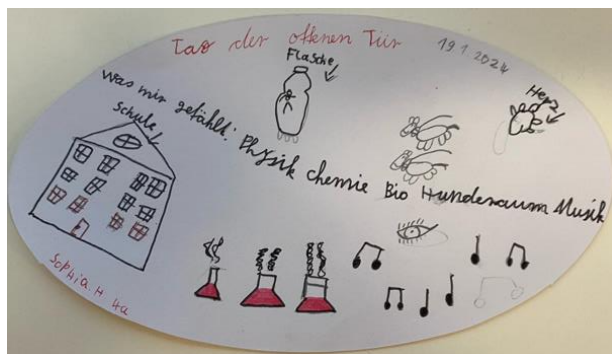 Tag der offenen Tür
19.1.2024
Flasche
Herz
Was mir gefählt: Physik Chemie Bio Hunderaum Musik
Schule
Sophia. H 4a